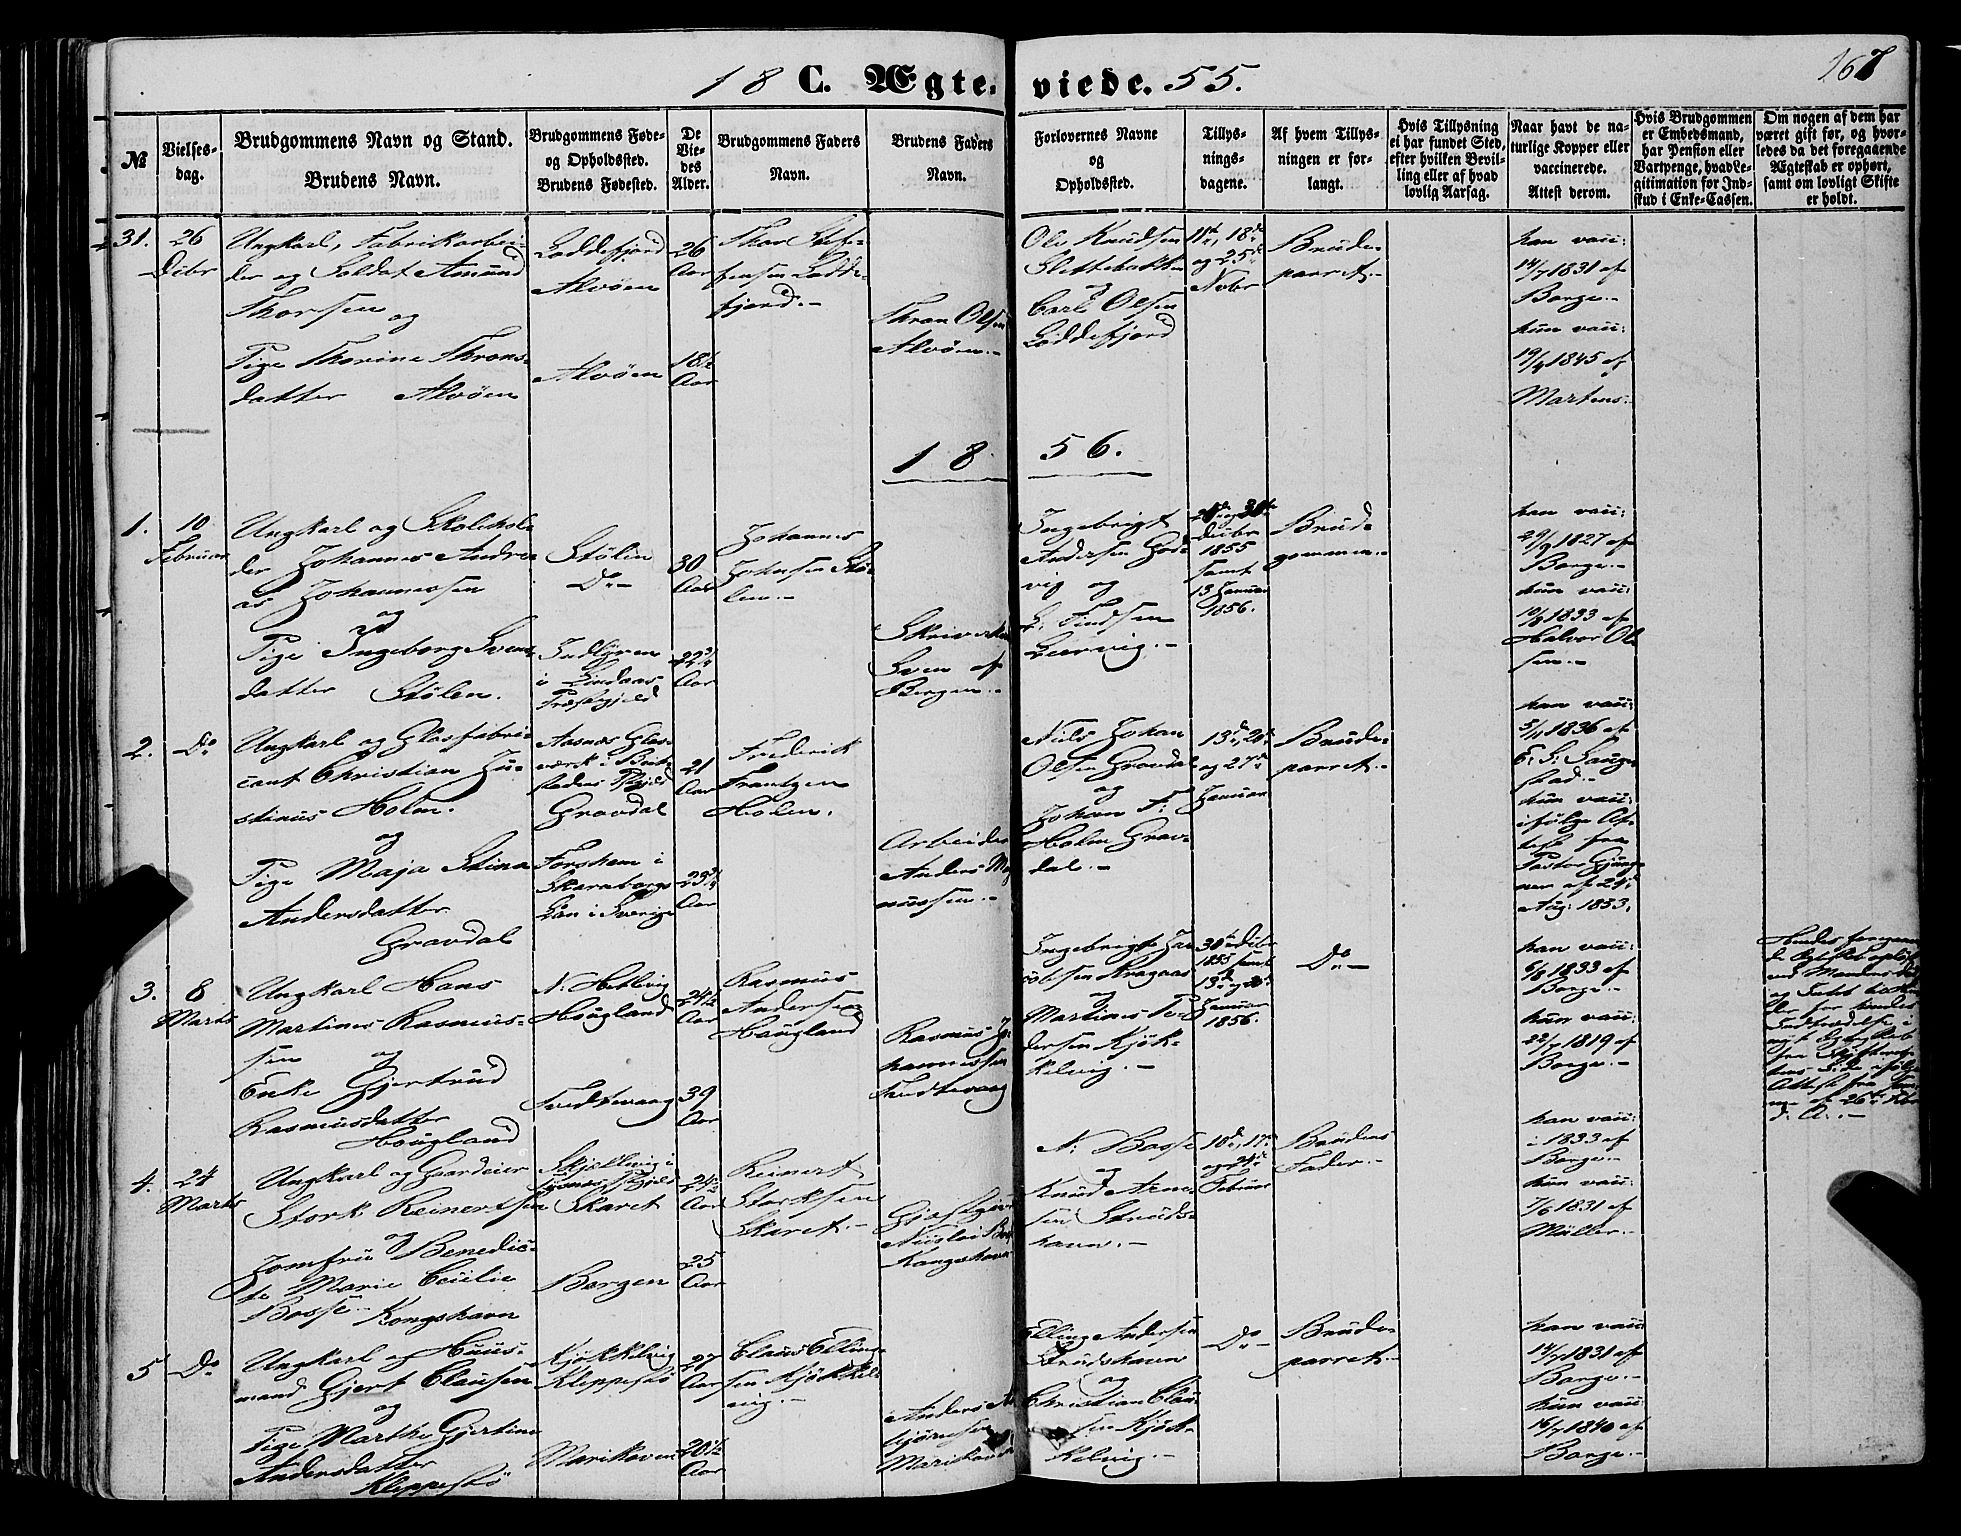 167
18 C. Ægte-
viede. 55.
№
Vielses-
dag.
Brudgommens Navn og Stand.
Brudens Navn.
Brudgommens Føde-
og Opholdssted.
Brudens Fødested.
De
Vie-
des
Alder.
Brudgommens Faders
Navn.
Brudens Faders
Navn.
Forlovernes Navne
og
Opholdssted.
Tillys-
nings-
dagene.
Af hvem Tillys-
ningen er for-
langt.
Hvis Tillysning
ei har fundet Sted,
efter hvilken Bevil-
ling eller af hvad
lovlig Aarsag.
Naar havt de na-
turlige Kopper eller
vaccinerede.
Attest derom.
Hvis Brudgommen
er Embedsmand,
har Pension eller
Vartpenge, hvad Le-
gitimation for Ind-
skud i Enke-Cassen.
Om nogen af dem har
været gift før, og hvor-
ledes da det foregaaende
Ægteskab er ophørt,
samt om lovligt Skifte
er holdt.
31.
26
Decbr
Ungkarl, Fabrikarbei-
der og Soldat Amund
Thorsen
og
Pige Thorine Throns-
datter Alvøen
Loddefjord
Alvøen
Alvøen
26
Aar
18½
Aar
Thor Stef-
fensen Lodde-
fjord.-
Thron Olsen
Alvøen.-
Ole Knudsen
Slettebakk
Carl Olsen
Loddefjord
11te, 18de
og 25de
Novbr
Brude-
parret.-
han vacc:
14/7 1831 af
Borge.-
hun vacc:
19/9 1845 af
Martens.-
18
56.
1.
10
Februar
Ungkarl og Skolehol-
der Johannes Andre-
as Johannessen
og
Pige Ingeborg Svens-
datter Stølen.
Stølen
Do-
Indøren
i Lindaas
Præstegjeld
30
Aar
22¾
Aar
Johannes
Johnsen Stø-
len.-
Sven af
Bergen.-
Ingebrigt
Andersen God-
vig og
Leirvig.-
30te
Decbr
1855
samt
13 Januar
1856.
Brud-
gommen.-
han vacc:
29/9 1827 af
Borge.-
hun vacc:
10/9 1833 af
Halvor Ol-
sen.-
2.
Do
Ungkarl og Glasfabri-
cant Christian Ju-
stinus Holm.
og
Pige Maja Stina
Andersdatter
Gravdal
Aasnes Glas-
værk i
Gravdal
Forsham i
Skaraborgs
Län i Sverige
21
Aar
23¾
Aar
Frederik
Frantzen
Holm.
Arbeider
Anders Mag-
nussen.-
Niels Johan
Olsen Gravdal
og
Johan F:
Holm Grav-
dal.-
13de, 20de
og 27de
Januar
Brude-
parret.-
han vacc:
5/11 1836 af
hun vacc:
ifølge At-
test fra
Pastor
af 24de
Aug: 1853.
3.
8
Marts
Ungkarl Hans
Martines Rasmus-
sen og
Enke Gjertrud
Rasmusdatter
Hougland
N: Hetlevig
Hougland
Tvedtevaag
24½
Aar
39
Aar
Rasmus
Andersen
Hougland
Rasmus Jo-
hannessen
Tvedtevaag
Ingebrigt Ja-
cobsen Kragaas
og
Martines Pe-
dersen Kjøk-
kelvig.-
30te Decbr
1855 samt
13de og 20de
Januar
1856.
Do.-
han vacc:
6/9 1833 af
Borge.-
hun vacc:
22/7 1819 af
Borge.-
4.
24
Marts
Ungkarl og Gardeier
Stork Reinertsen
og
Jomfru Benedic-
te Marie Cecilie
Bosse.- Kongshavn
Skjelvig i
Skaret
Bergen
24½
Aar
25
Aar
Reinert
Storksen
Skaret.-
Gjæstgiver
Nicolai Bosse
Kongshavn
N: Bosse
og
Knud Arne-
sen Struds-
havn.-
10de, 17de
og 24de
Februar
Brudens
Fader.-
han vacc:
i 1833 af
Borge.-
hun vacc:
7/6 1831 af
Müller.-
5
Do
Ungkarl og Huus-
mand Gjert Clausen
og
Pige Marthe Gjertine
Andersdatter
Kleppestø
Kjøkkelvig
Kleppestø
Marikoven
27
Aar
20½
Aar
Claus Elling-
sen Kjøkkel-
vig.-
Anders As-
bjørnsen
Marikoven
Elling Andersen
Strudshavn
og
Christian Clau-
sen Kjøk-
kelvig.-
Do-
Brude-
parret.-
han vacc:
14/7 1831 af
Borge.-
hun vacc:
16/7 1840 af
Borge.-